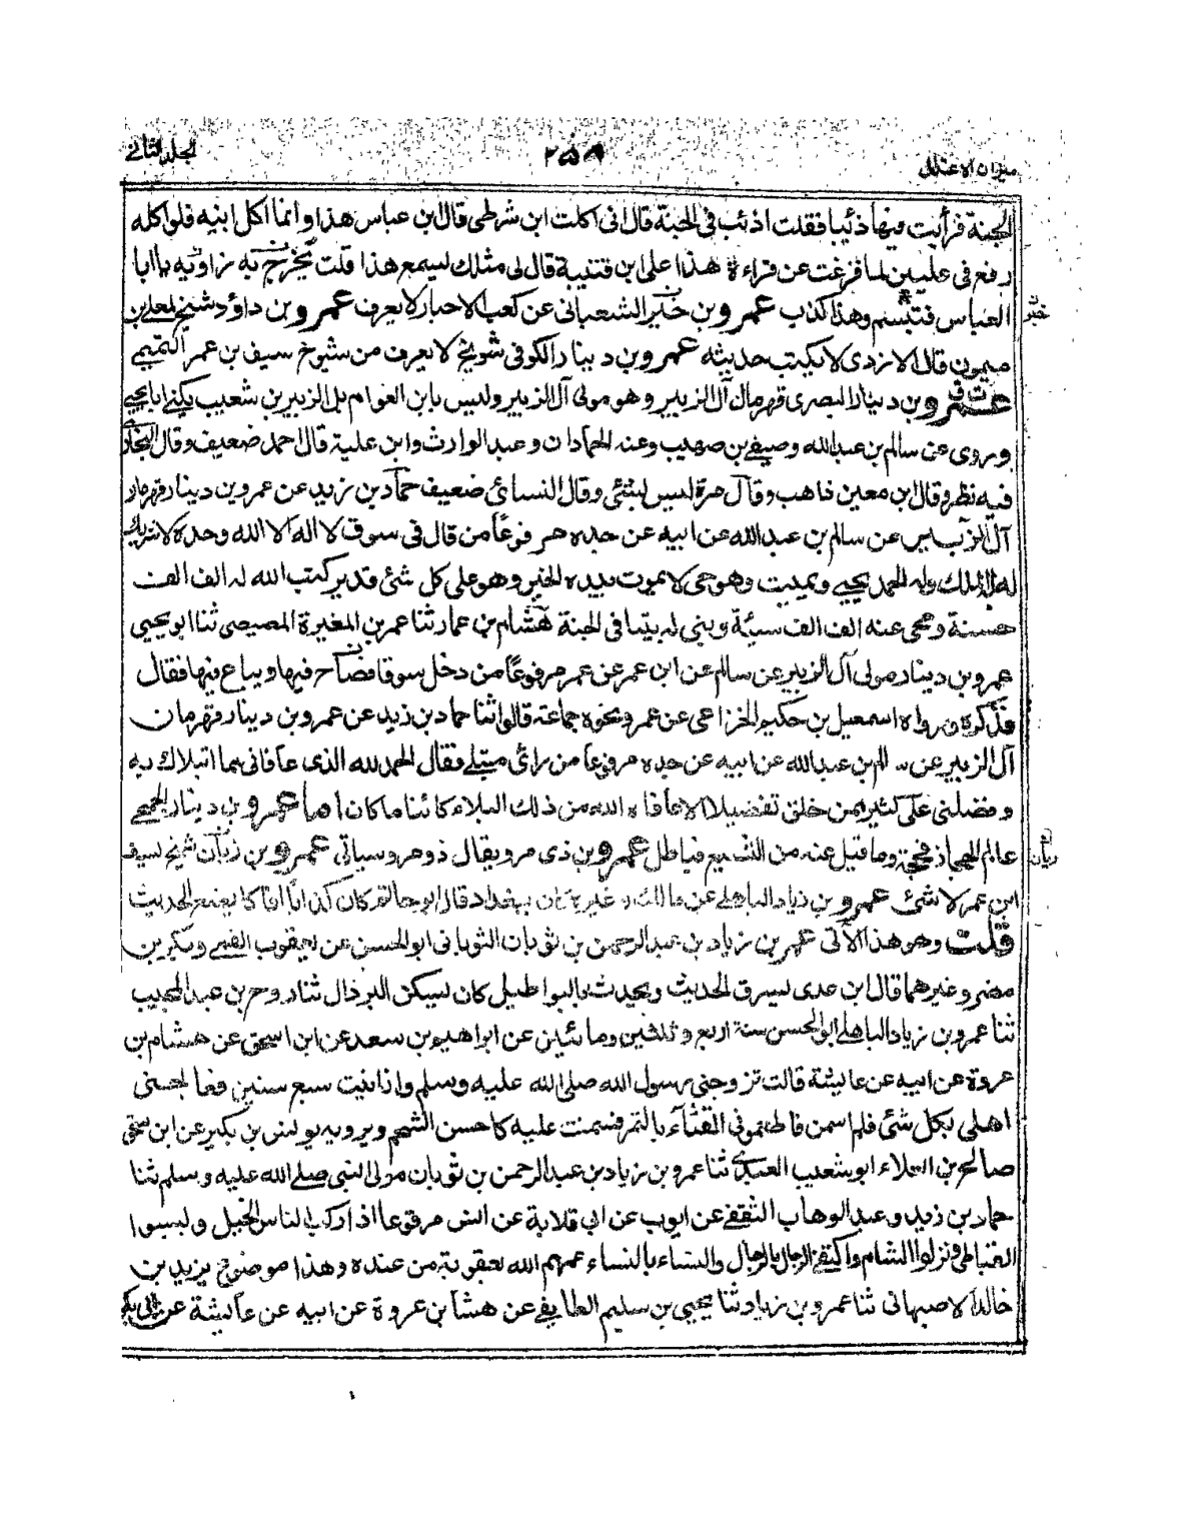 ميزان الاعتدال ٢٥٨ الجلد الثاني
الجنة فرأيت فيها ذئبا فقلت اذئب في الجنة قال اني اكلت ابن شرطي قال ابن عباس هذا وانما اكل ابنيه فلو اكله
رفع في عليين لما فرغت عن قراءة هذا على ابن قتيبة قال لي مثلك ليسمع هذا قلت يخرج به راويه يا ابا
العباس فتبسم وهذا كذب عمرو بن خير الشعباني عن كعب الاحبار لا يعرف عمرو بن داؤد شيخ لمعلى بن
خير
ميمون قال الازدي لا يكتب حديثه عمرو بن دينار الكوفي شويخ لا يعرف من شيوخ سيف بن عمر التميمي
عمرو بن دينار البصري قهرمان آل الزبير وهو مولى آل الزبير وليس بابن العوام بل الزبير بن شعيب يكنى ابا يحيى
ويروى عن سالم بن عبد الله وصيفي بن صهيب وعنه الحمادان وعبد الوارث وابن علية قال احمد ضعيف وقال البخاري
فيه نظر وقال ابن معين ذاهب وقال مرة ليس بشئ وقال النسائي ضعيف حماد بن زيد عن عمرو بن دينار قهرمان
آل الزبير عن سالم بن عبد الله عن ابيه عن جده مرفوعا من قال في سوق لا اله الا الله وحده لا شريك
له له الملك وله الحمد يحيي ويميت وهو حي لا يموت بيده الخير وهو على كل شئ قدير كتب الله له الف الف
حسنة ومحى عنه الف الف سيئة وبنى له بيتا في الجنة هشام بن عمار ثنا عمر بن المغيرة المصيصي ثنا ابو يحيى
عمرو بن دينار مولى آل الزبير عن سالم عن ابن عمر عن عمر مرفوعا من دخل سوقا فصاح فيها ويباع فيها فقال
فذكره ورواه اسمعيل بن حكيم الخزاعي عن عمرو نحوه جماعة قالوا ثنا حماد بن زيد عن عمرو بن دينار قهرمان
آل الزبير عن سالم بن عبد الله عن ابيه عن جده مرفوعا من رأى مبتلى فقال الحمد لله الذي عافاني مما ابتلاك به
وفضلني على كثير ممن خلق تفضيلا الا عافاه الله من ذلك البلاء كائنا ما كان اما عمرو بن دينار الجمحي
عالم الحجاز فحجة وما قيل عنه من التشيع فباطل عمرو بن ذي مر ويقال ذو مر وسياتي عمرو بن زبان شيخ لسيف
زبان
ابن عمر لا شئ عمرو بن زياد الباهلي عن مالك وغيره كان ببغداد قال ابو حاتم كان كذابا افاكا يضع الحديث
قلت وهو هذا الآتي عمر بن زياد بن عبد الرحمن بن ثوبان الثوباني ابو الحسن عن يعقوب القمي وبكر بن
مضر وغيرهما قال ابن عدي يسرق الحديث ويحدث بالبواطيل كان يسكن البردان ثنا روح بن عبد المجيب
ثنا عمرو بن زياد الباهلي ابو الحسن سنة اربع وثلثين ومائتين عن ابراهيم بن سعد عن ابن اسحق عن هشام بن
عروة عن ابيه عن عايشة قالت تزوجني رسول الله صلى الله عليه وسلم وانا بنت سبع سنين فعالجني
اهلي بكل شئ فلم اسمن فاطعموني القثاء بالتمر فسمنت عليه كاحسن الشحم ويرويه يونس بن بكير عن ابن اسحق
صالح بن العلاء ابو شعيب العبدي ثنا عمرو بن زياد بن عبد الرحمن بن ثوبان مولى النبي صلى الله عليه وسلم ثنا
حماد بن زيد وعبد الوهاب الثقفي عن ايوب عن ابي قلابة عن انس مرفوعا اذا ركب الناس الخيل ولبسوا
القباطي ونزلوا الشام واكتفى الرجال بالرجال والنساء بالنساء عمهم الله بعقوبة من عنده وهذا موضوع يزيد بن
خالد الاصبهاني ثنا عمرو بن زياد ثنا يحيى بن سليم الطايفي عن هشام بن عروة عن ابيه عن عايشة عن ابي بكر